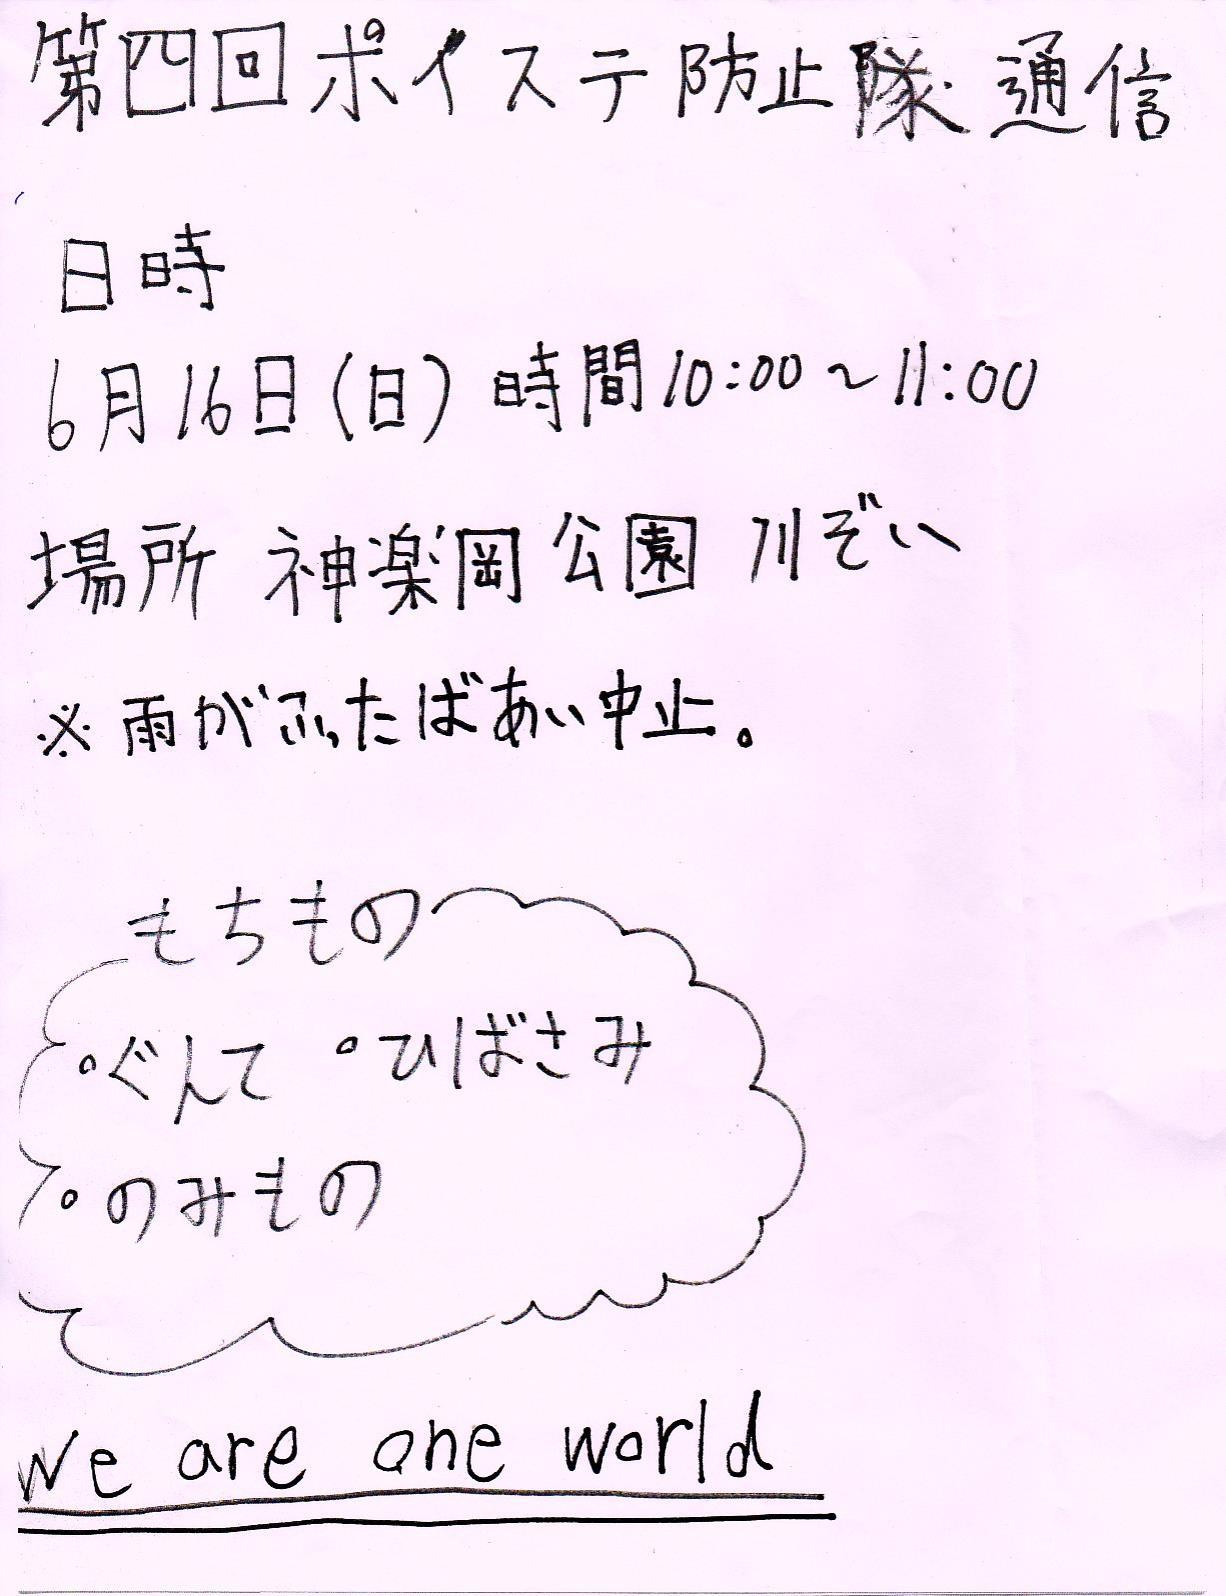 第四回ポイステ防止隊通信
日時
6月16日(日) 時間10:00~11:00
場所 神楽岡公園 川ぞい
※雨がふったばあい中止。
もちもの
・ぐんて ・ひばさみ
・のみもの
We are one world